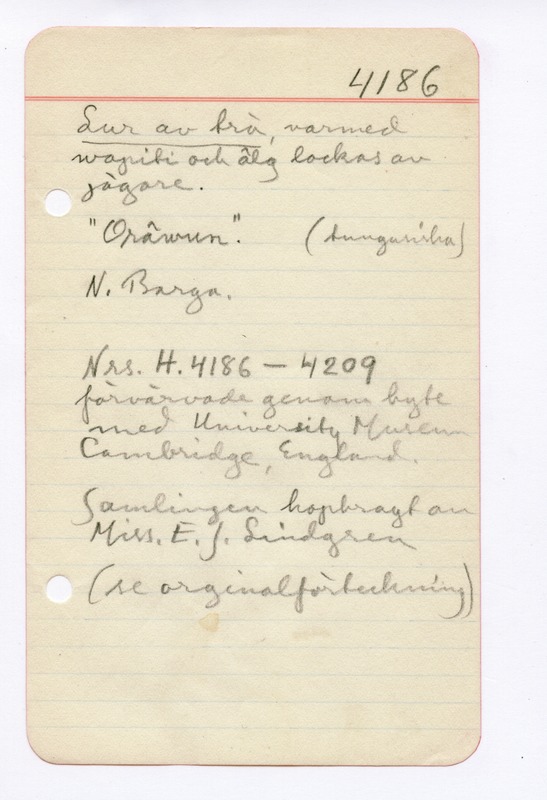 4186
Lur av trä, varmed
wapiti och älg lockas av
jägare.
"Orâwun". (tungusiska)
N. Barga.
Nrs. H. 4186 – 4209
förvärvade genom byte
med University Museum
Cambridge, England.
Samlingen hopbragt av
Miss. E. J. Lindgren
(se orginalförteckning)